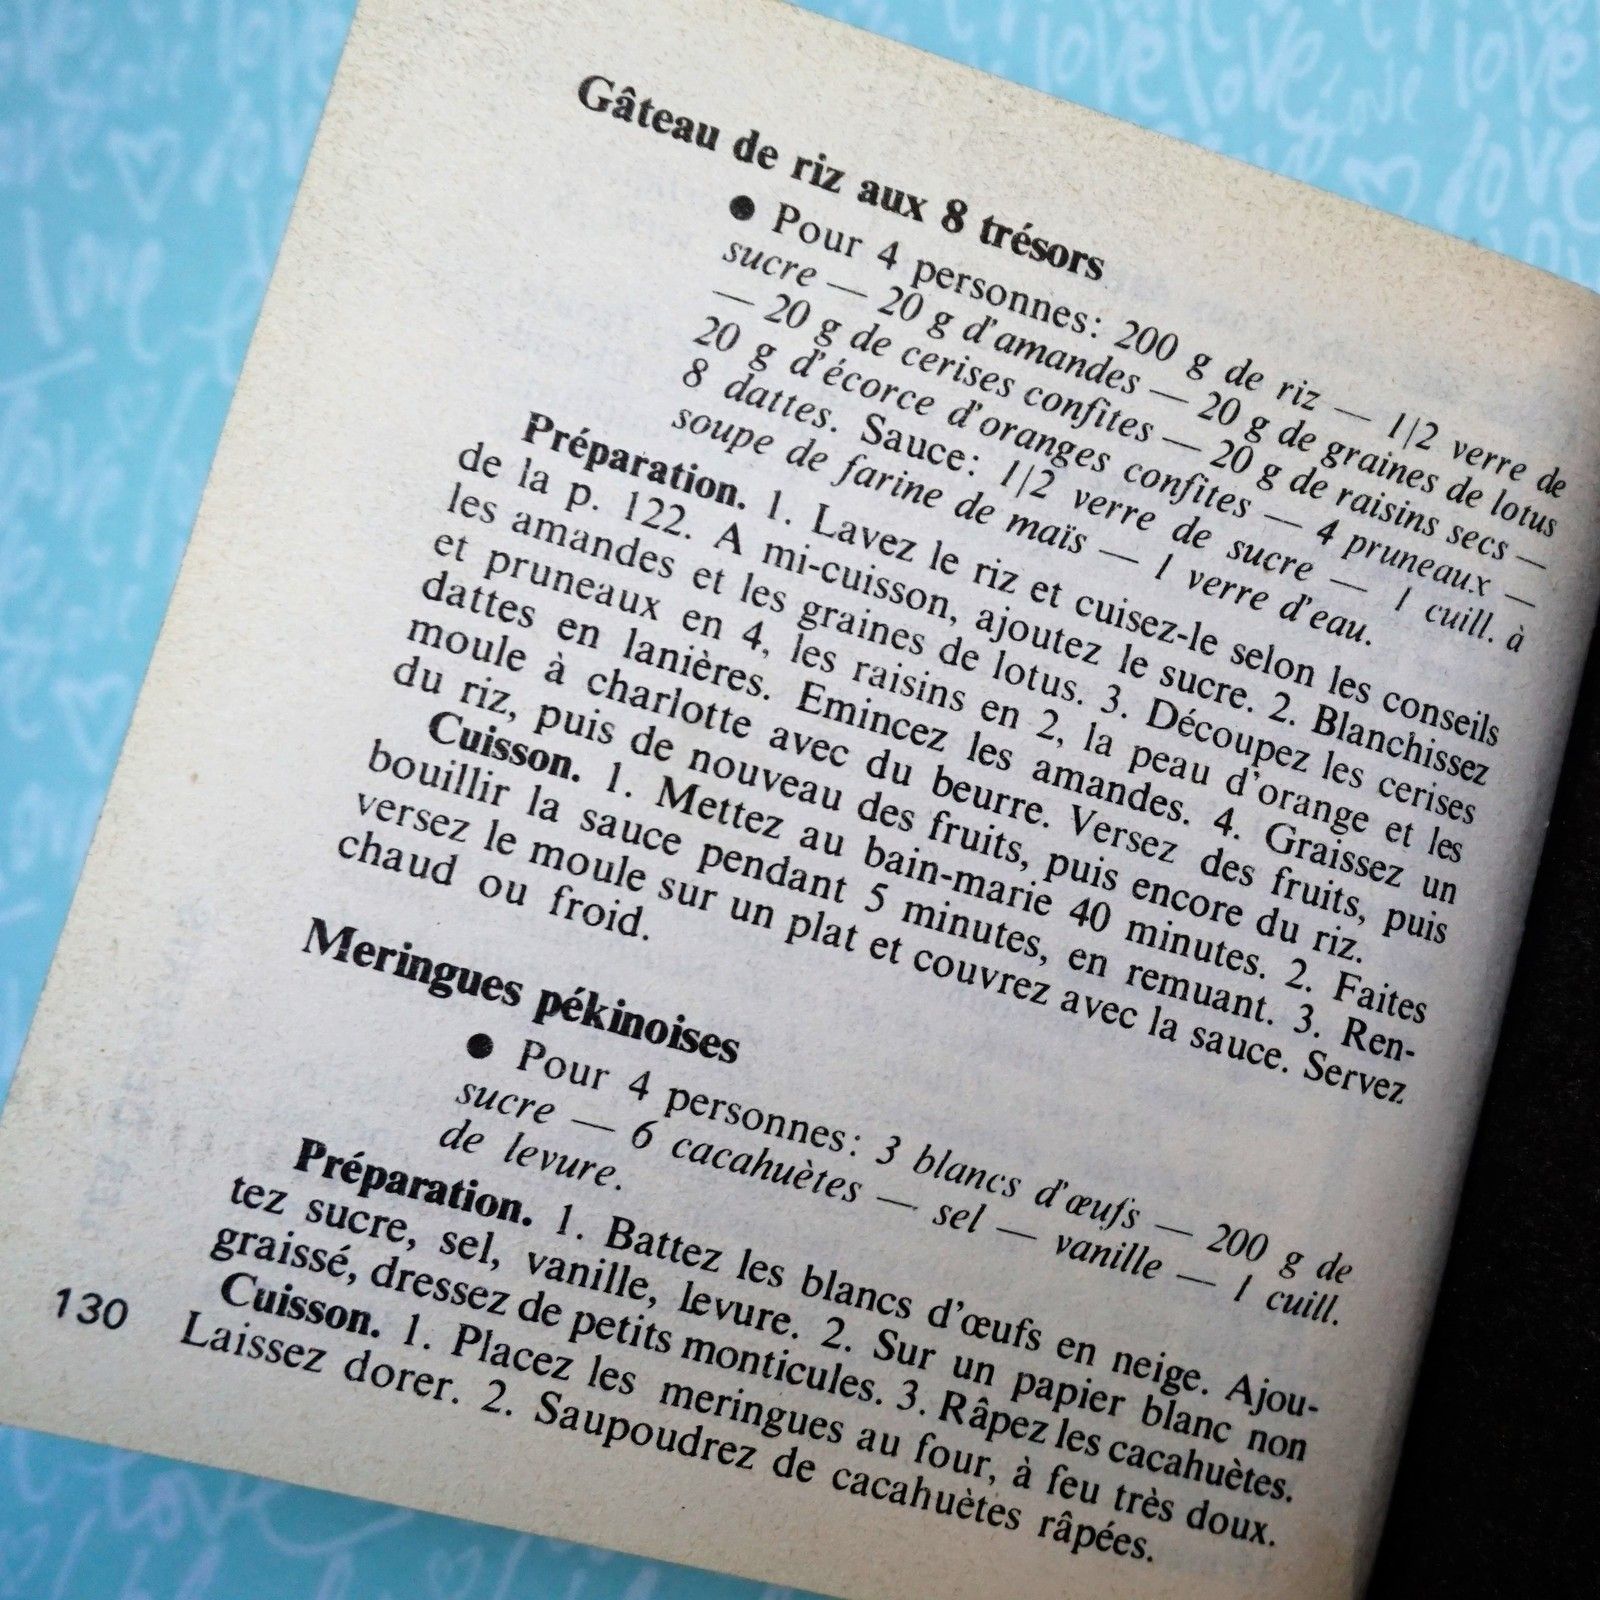 Gâteau de riz aux 8 trésors
● Pour 4 personnes: 200 g de riz — 1/2 verre de
sucre — 20 g d'amandes — 20 g de graines de lotus
— 20 g de cerises confites — 20 g de raisins secs —
20 g d'écorce d'oranges confites — 4 pruneaux —
8 dattes. Sauce: 1/2 verre de sucre — 1 cuill. à
soupe de farine de maïs — 1 verre d'eau.
Préparation. 1. Lavez le riz et cuisez-le selon les conseils
de la p. 122. A mi-cuisson, ajoutez le sucre. 2. Blanchissez
les amandes et les graines de lotus. 3. Découpez les cerises
et pruneaux en 4, les raisins en 2, la peau d'orange et les
dattes en lanières. Emincez les amandes. 4. Graissez un
moule à charlotte avec du beurre. Versez des fruits, puis
du riz, puis de nouveau des fruits, puis encore du riz.
Cuisson. 1. Mettez au bain-marie 40 minutes. 2. Faites
bouillir la sauce pendant 5 minutes, en remuant. 3. Ren-
versez le moule sur un plat et couvrez avec la sauce. Servez
chaud ou froid.
Meringues pékinoises
● Pour 4 personnes: 3 blancs d'œufs — 200 g de
sucre — 6 cacahuètes — sel — vanille — 1 cuill.
de levure.
Préparation. 1. Battez les blancs d'œufs en neige. Ajou-
tez sucre, sel, vanille, levure. 2. Sur un papier blanc non
graissé, dressez de petits monticules. 3. Râpez les cacahuètes.
Cuisson. 1. Placez les meringues au four, à feu très doux.
Laissez dorer. 2. Saupoudrez de cacahuètes râpées.
130
love love love
love
love
love